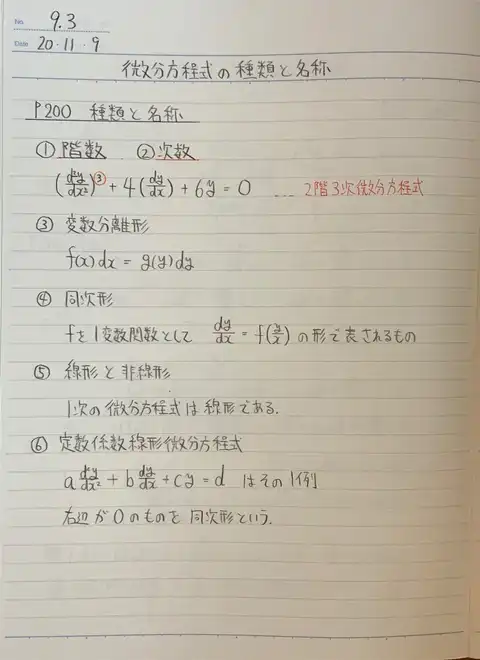 No. 9.3
Date 20・11・9
微分方程式の種類と名称
P200 種類と名称
① 階数 ② 次数
(d²y/dx²)^③ + 4(dy/dx) + 6y = 0 ... 2階3次微分方程式
③ 変数分離形
f(x)dx = g(y)dy
④ 同次形
fを1変数関数として dy/dx = f(y/x) の形で表されるもの
⑤ 線形と非線形
1次の微分方程式は線形である.
⑥ 定数係数線形微分方程式
a d²y/dx² + b dy/dx + cy = d はその1例
右辺が0のものを同次形という.